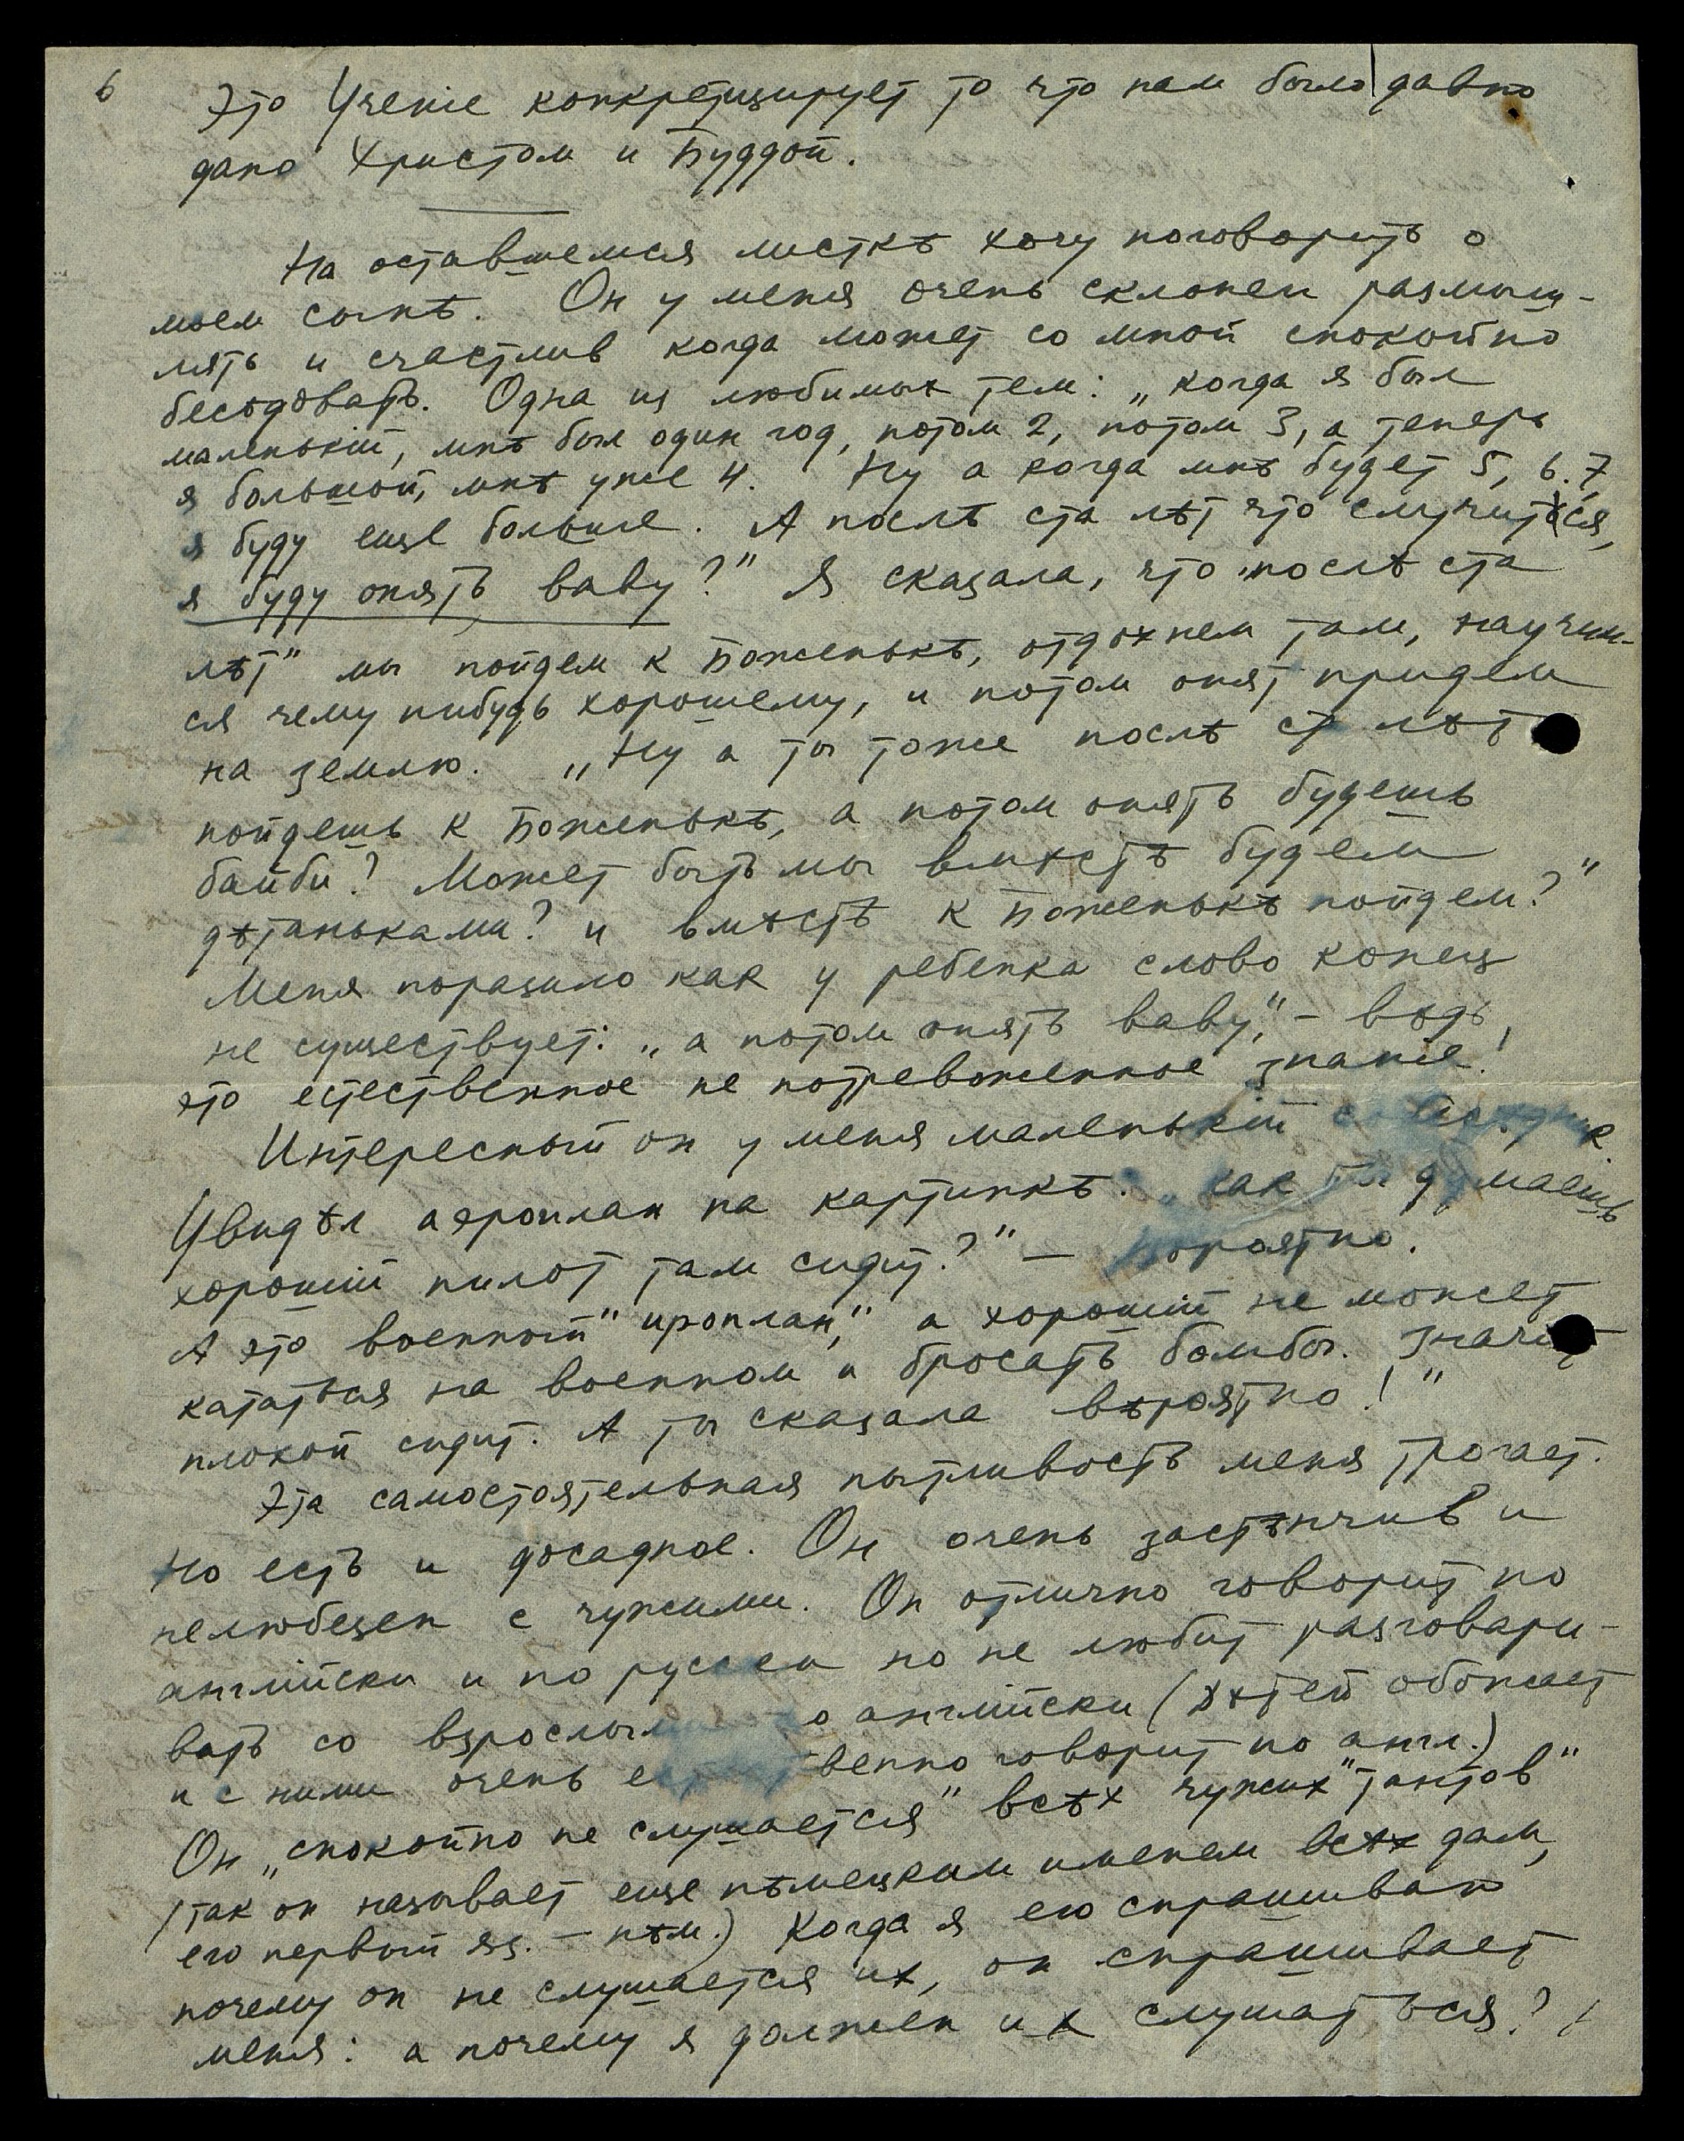 6
Это Ученіе конкретизирует то что нам было давно
дано Христом и Буддой.
На оставшемся листкѣ хочу поговорить о
моем сынѣ. Он у меня очень склонен размыш-
лять и счастлив когда может со мной спокойно
бесѣдовать. Одна из любимых тем: „когда я был
маленькій, мнѣ был один год, потом 2, потом 3, а теперь
я большой, мнѣ уже 4. Ну а когда мнѣ будет 5, 6. 7,
я буду еще больше. А послѣ ста лѣт что случится,
я буду опять baby?" Я сказала, что „послѣ ста
лѣт" мы пойдем к Боженькѣ, отдохнем там, научим-
ся чему нибудь хорошему, и потом опят придем
на землю. „Ну а ты тоже послѣ ст лѣт
пойдешь к Боженькѣ, а потом опять будешь
байби? Может быть мы вмѣстѣ будем
дѣтаньками? и вмѣстѣ к Боженькѣ пойдем?"
Меня поразило как у ребенка слово конец
не существует: „а потом опять baby", – вѣдь,
это естественное не потревоженное знаніе!
Интересный он у меня маленькій собесѣдник
Увидѣл аэроплан на картинкѣ: „как ты думаешь
хорошій пилот там сидит?" — Вѣроятно.
А это военный "ироплан", а хорошій не может
кататься на военном и бросать бомбы. Значит
плохой сидит. А ты сказала вѣроятно!"
Эта самостоятельная пытливость меня трогает.
Но есть и досадное. Он очень застѣнчив и
нелюбезен с чужими. Он отлично говорит по
англійски и по русски но не любит разговари-
вать со взрослыми по англійски (дѣтей обожает
и с ними очень естественно говорит по англ.)
Он „спокойно не слушается" всѣх чужих "тантов"
(так он называет еще нѣмецким именем всѣх дам,
его первый яз. – нѣм.) Когда я его спрашиваю
почему он не слушается их, он спрашивает
меня: а почему я должен их слушаться?